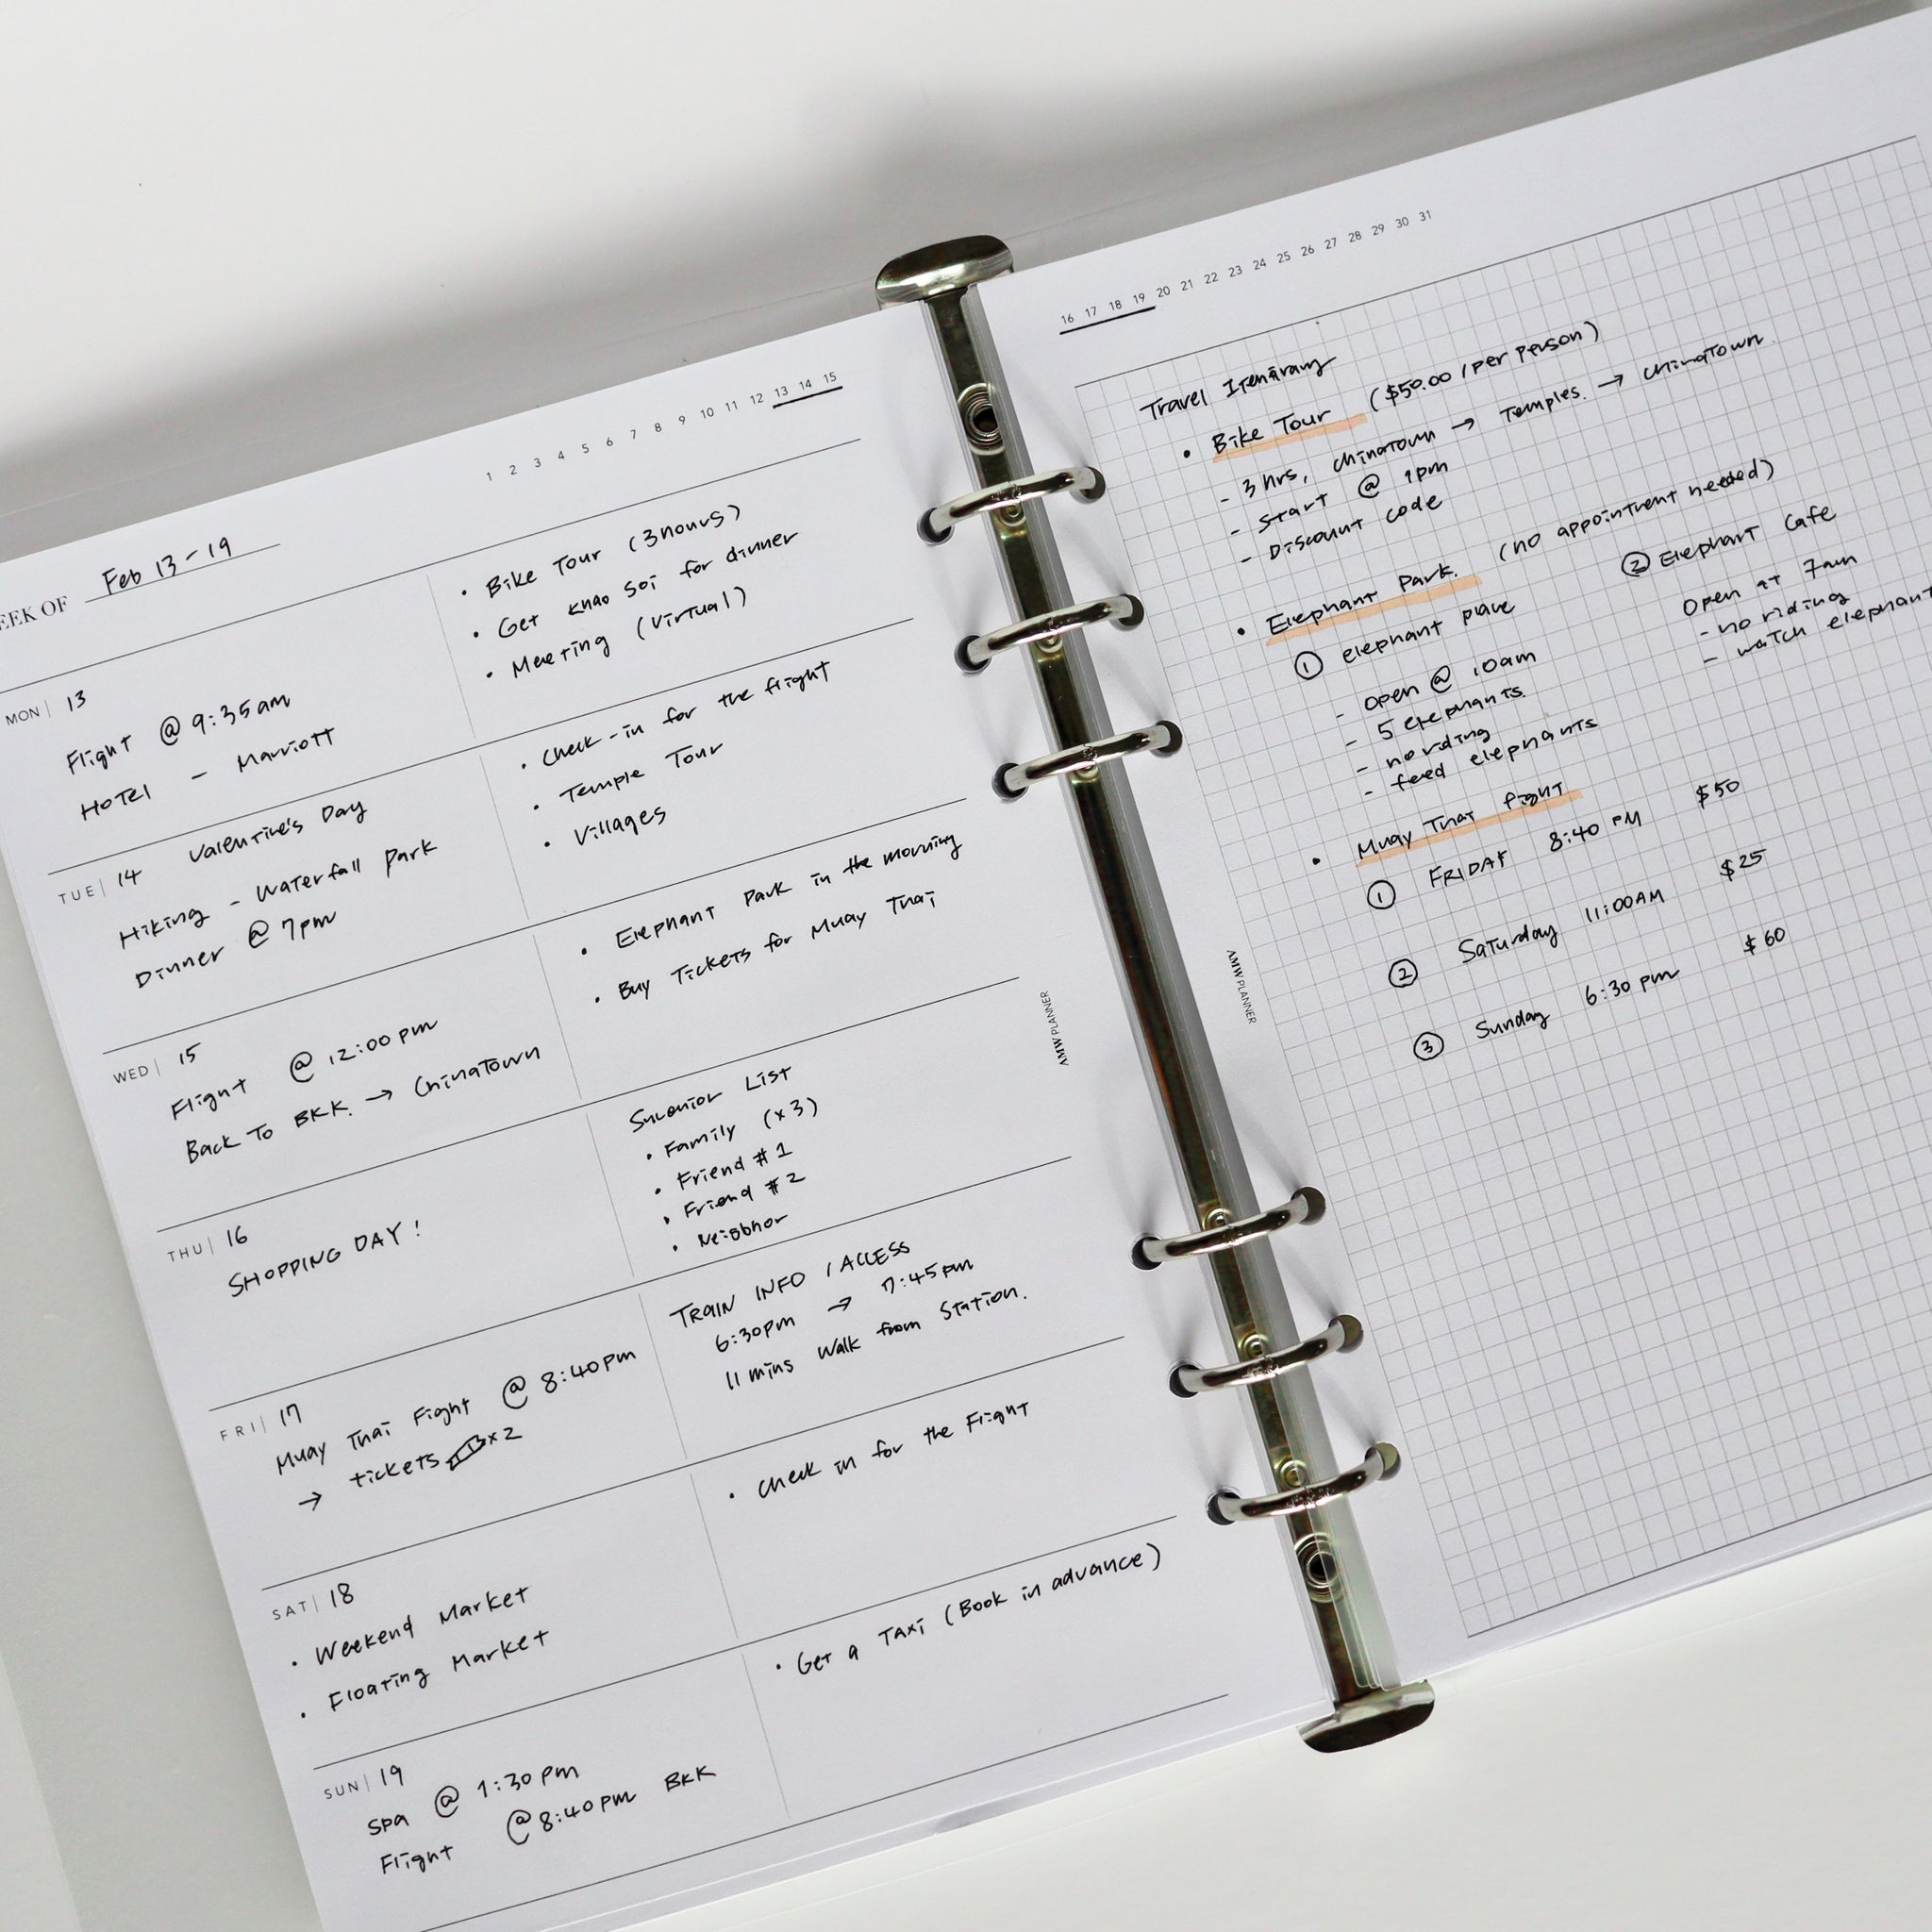 EEK OF Feb 13 - 19
1 2 3 4 5 6 7 8 9 10 11 12 13 14 15
MON | 13
Flight @ 9:35am
Hotel - Marriott
• Bike Tour (3hours)
• Get Khao Soi for dinner
• Meeting (virtual)
TUE | 14 Valentine's Day
Hiking - Waterfall Park
Dinner @ 7pm
• Check-in for the flight
• Temple Tour
• Villages
WED | 15
Flight @ 12:00pm
Back To BKK. → Chinatown
• Elephant Park in the morning
• Buy Tickets for Muay Thai
THU | 16
SHOPPING DAY!
Suvenior List
• Family (x3)
• Friend #1
• Friend #2
• Neighbor
FRI | 17
Muay Thai Fight @ 8:40pm
→ tickets x2
TRAIN INFO / ACCESS
6:30pm → 7:45pm
11 mins walk from Station.
SAT | 18
• Weekend Market
• Floating Market
• Check in for the Flight
SUN | 19
Spa @ 1:30pm
Flight @8:40pm BKK
• Get a Taxi (Book in advance)
AMW PLANNER
16 17 18 19 20 21 22 23 24 25 26 27 28 29 30 31
Travel Itenirary
• Bike Tour ($50.00 / per person)
- 3 hrs, Chinatown → Temples. → Chinatown
- Start @ 1pm
- Discount code
• Elephant Park. (no appointment needed)
① elephant place
- open @ 10am
- 5 elephants.
- no riding
- feed elephants
② Elephant Cafe
Open at 7am
- no riding
- watch elephant
• Muay Thai fight
① FRIDAY 8:40 PM $50
② Saturday 11:00AM $25
③ Sunday 6:30 pm $60
AMW PLANNER